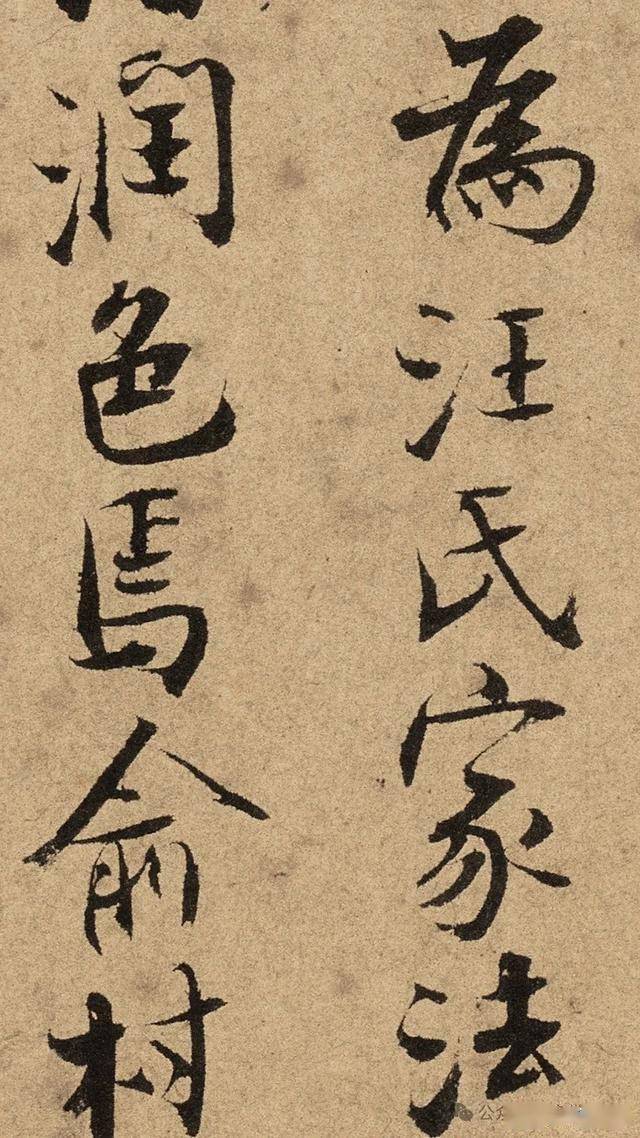 為汪氏家法
潤色焉俞村
公